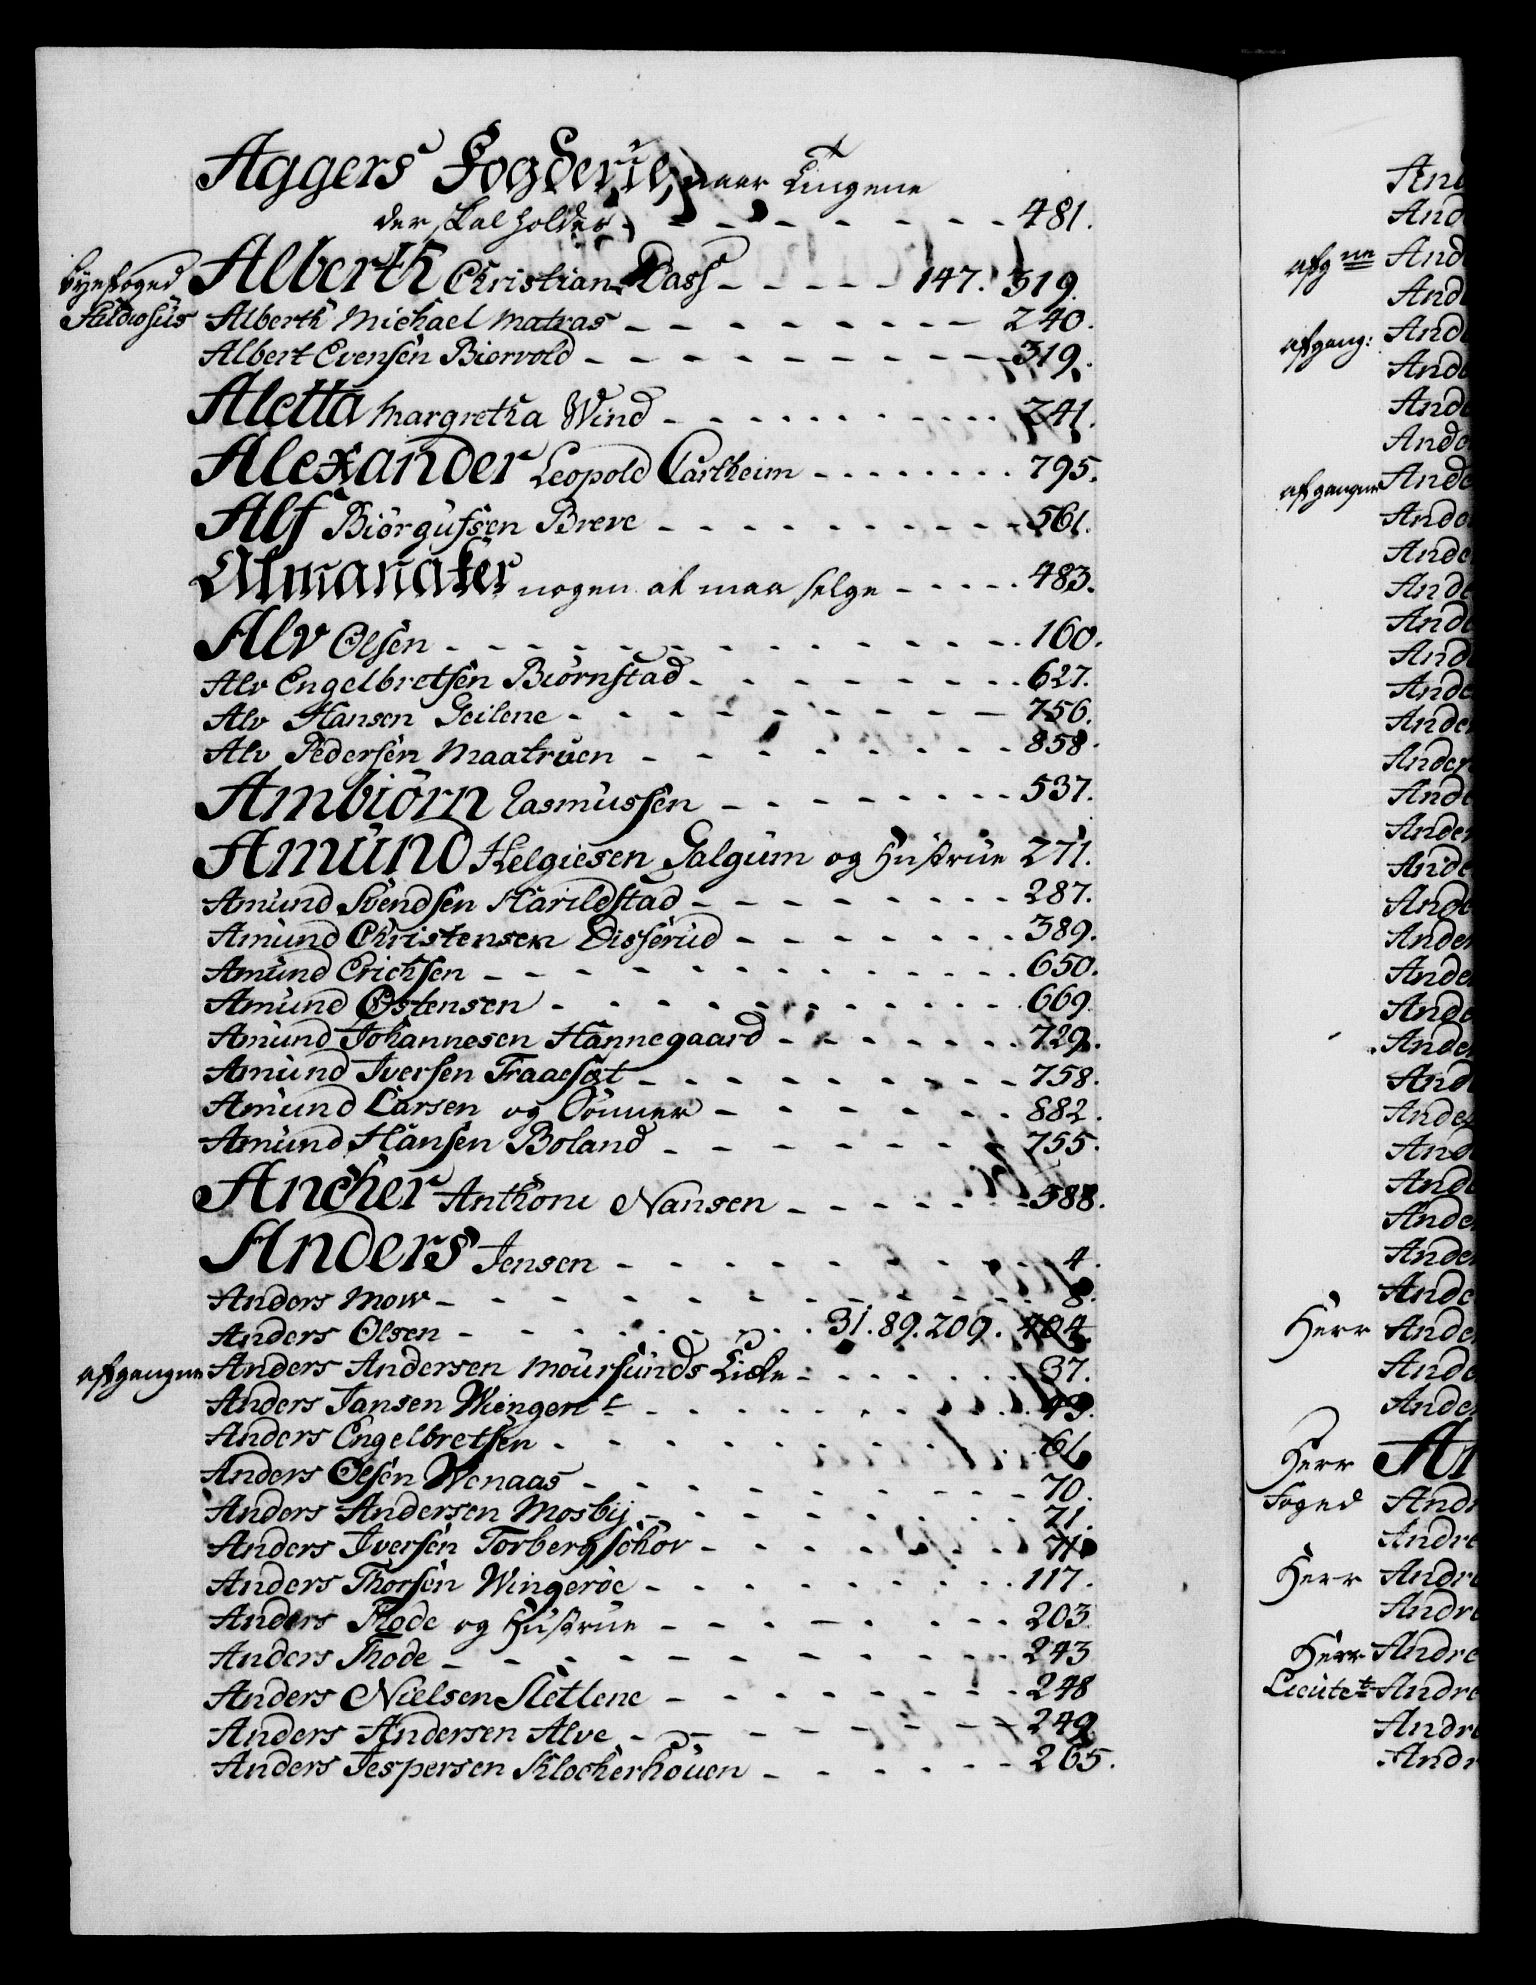 Aggers Fogderie, naar Tingene
der skal holdes - - - 481.
Byefoged Alberth Christian Dass - - - 147. 319.
Studiosus Alberth Michael Matras - - - 240.
Albert Evensen Biorvold - - - 319.
Aletta Margretha Wind - - - 241.
Alexander Leopold Cartheim - - - 795.
Alf Biörgufsen Breve - - - 561.
Almanaker nogen at maa selge - - - 483.
Alv Olsen - - - 160.
Alv Engelbretsen Biörnstad - - - 627.
Alv Hansen Geilene - - - 756.
Alv Pedersen Maatruen - - - 858.
Ambiörn Rasmussen - - - 537.
Amund Helgiesen Galgum og Hustrue 271.
Amund Svendsen Harildstad - - - 287.
Amund Christensen Disserud - - - 389.
Amund Erichsen - - - 650.
Amund Østensen - - - 669.
Amund Johannesen Hannegaard - - - 729.
Amund Iversen Traaesæt - - - 758.
Amund Larsen og Sönner - - - 882.
Amund Hansen Boland - - - 755.
Ancher Anthoni Nansen - - - 588.
Anders Jensen - - - 4.
Anders Mow - - - 8.
Anders Olsen - - - 31. 89. 209. 404.
afgangne Anders Andersen Moursunds - - - 37.
Anders Jansen Wiengen - - - 49.
Anders Engelbretsen - - - 61.
Anders Olsen Wenaas - - - 70.
Anders Andersen Mosbÿ - - - 71.
Anders Iversen Torbergschov - - - 71.
Anders Thorsen Wingeröe - - - 117.
Anders Flode og Hustrue - - - 203.
Anders Thode - - - 243
Anders Nielsen Sletlene - - - 248
Anders Andersen Alve - - - 249.
Anders Jespersen Klockerhouen - - - 265.
afgne
afgang:
afgangne
Herr
Herr
Foged
Herr
Herr
Lieutet